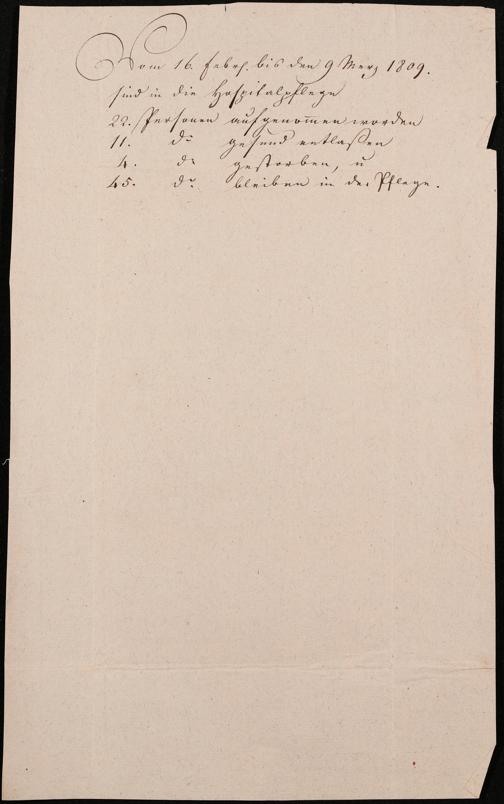 Vom 16. Febr. bis den 9 Merz 1809.
sind in die Hospitalpflege
22. Personen aufgenom̄en worden
11. do gesund entlaßen
4. do gestorben, u
45. do bleiben in der Pflege.